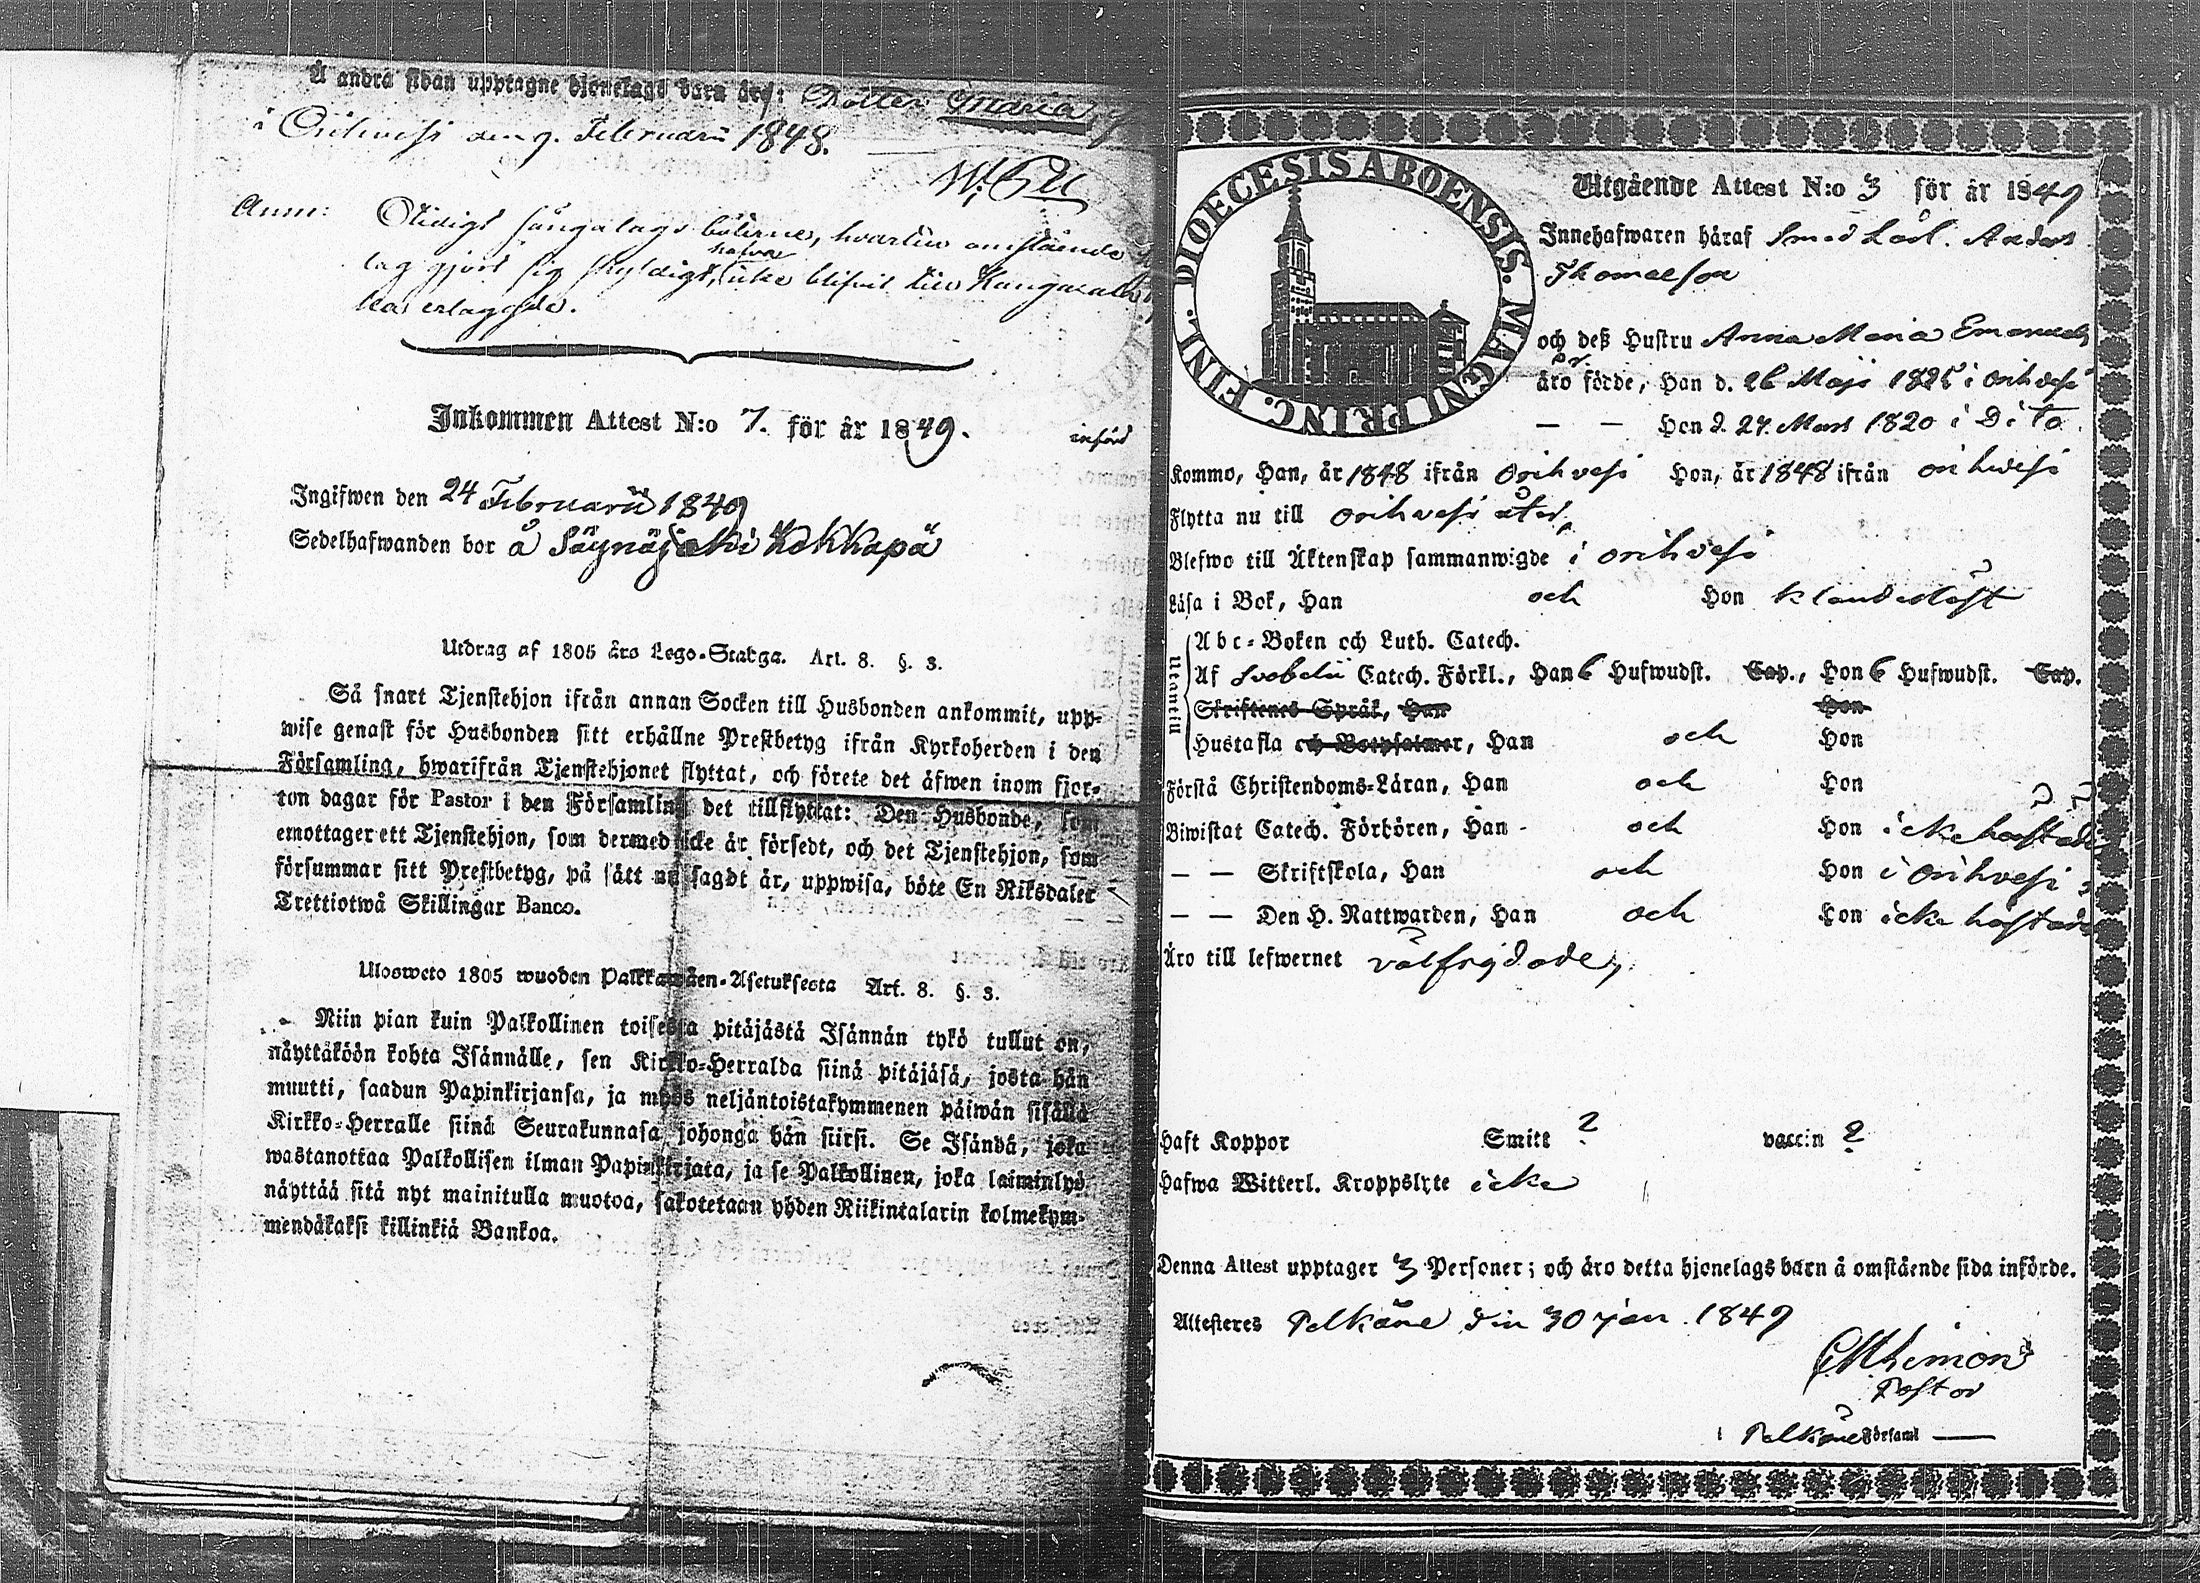 Å andra sidan upptagne hjonelags barn äro: Dotter Maria
i Orihvesi den 9. Februarii 1848.
Anm: Otidigt sängalags böterne, hvartill omstående
hafva
lag gjort sig skyldigt, icke blifvit till Kangasala
erlaggde.
Inkommen Attest N:o 7. för år 1849.
införd
Ingifwen den 24 Februarii 1849
Sedelhafwanden bor å Säynäjoki Kokkapä
Utdrag af 1805 års Lego-Stadga. Art. 8. §. 3.
Så snart Tjenstehjon ifrån annan Socken till Husbonden ankommit, upp-
wise genast för Husbonden sitt erhållne Prestbetyg ifrån Kyrkoherden i den
Församling, hwarifrån Tjenstehjonet flyttat, och förete det äfwen inom fjor-
ton dagar för Pastor i den Församling det tillflyttat: Den Husbonde, som
emottager ett Tjenstehjon, som dermed icke är försedt, och det Tjenstehjon, som
försummar sitt Prestbetyg, på sätt nu sagdt är, uppwisa, böte En Riksdaler
Trettiotwå Skillingar Banco.
Ulosweto 1805 wuoden Palkkawäen-Asetuksesta Art. 8. §. 3.
Niin pian kuin Palkollinen toisesta pitäjästä Isännän tykö tullut on,
näyttäköön kohta Isännälle, sen Kirkko-Herralda siinä pitäjäsä, josta hän
muutti, saadun Papinkirjansa, ja myös neljäntoistakymmenen päiwän sisällä
Kirkko-Herralle siinä Seurakunnasa johonga hän siirsi. Se Isändä, joka
wastanottaa Palkollisen ilman Papinkirjata, ja se Palkollinen, joka laiminlyö
näyttää sitä nyt mainitulla muotoa, sakotetaan yhden Riikintalarin kolmekym-
mendäkaksi killinkiä Bankoa.
DIOECESIS ABOENSIS. MAGNI PRINC. FINL.
Utgående Attest N:o 3 för år 1849
Innehafwaren häraf Smed Anders
Thomasson
och deß Hustru Anna Maria Emanuels
dr.
äro födde, Han d. 26 Maji 1825 i Orihvesi
— — Hon d. 27. Mars 1820 i Dito
Kommo, Han, år 1848 ifrån Orihvesi Hon, år 1848 ifrån Orihvesi
Flytta nu till Orihvesi åter,
Blefwo till Äktenskap sammanwigde i Orihvesi
Läsa i Bok, Han och Hon klanderlöst
Utantill
Abc-Boken och Luth. Catech.
Af Svebelii Catech. Förkl., Han 6 Hufwudst. Cap., Hon 6 Hufwudst. Cap.
Skriftenes Språk, Han Hon
Hustafla och Botpsalmer, Han och Hon
Förstå Christendoms-Läran, Han och Hon
Biwistat Catech. Förhören, Han och Hon icke härstädes
— — Skriftskola, Han och Hon i Orihvesi
— — Den H. Nattwarden, Han och Hon icke härstädes
Äro till lefwernet välfrejdade,
Haft Koppor Smitt ? vaccin ?
Hafwa Witterl. Kroppslyte icke
Denna Attest upptager 3 Personer; och äro detta hjonelags barn å omstående sida införde.
Attesteres Pelkäne den 30 Jan. 1849
Pastor
i Pelkäne Församl